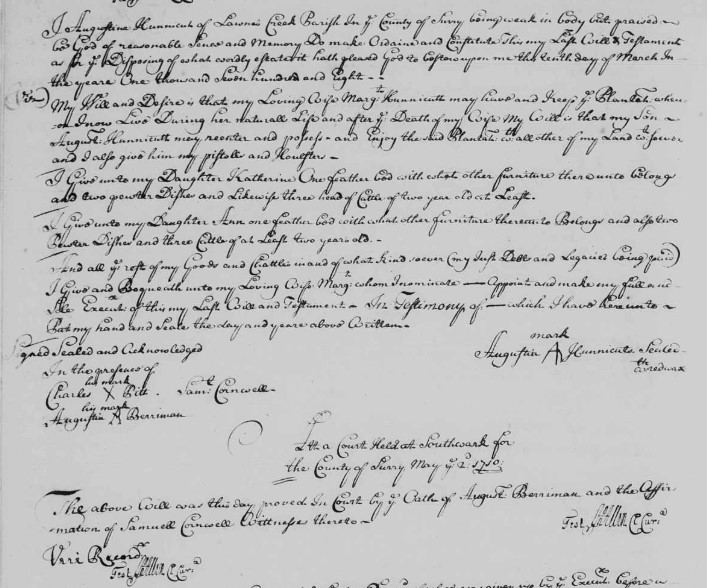 I Augustine Hunnicut of Lawnes Creek Parish In yͤ County of Surry being weak in body but praised
be God of reasonable Sence and Memory Do make Ordaine and Constitute This my Last Will & Testament
as for yͤ Disposing of what wordly estate it hath pleased God to bestow upon me this tenth day of March In
the yeare One thousand Seven hundred and Eight - -
My Will and Desire is that my Loving Wife Margᵗ Hunnicutt may have and Keep yͤ Plantatⁿ where
on I now Live During her naturall Life and after yͤ Death of my Wife My Will is that my Son
August: Hunnicutt may reenter and posess and Enjoy the said Plantatⁿ wᵗʰ all other of my Land wᵗ soever
and I also give him my pistolls and Houlsters -
I Give unto my Daughter Katherine One feather bed with what other furniture thereunto belong
and two pewter Dishes and Likewise three head of Cattle of two year old at Least.
I Give unto my Daughter Ann one feather bed with what other furniture thereunto Belongs and also two
Pewter Dishes and three Cattle of at Least two years old. -
And all yͤ rest of my Goods and Chattles in and of what Kind soever (my Just Debts and Legacies being paid)
I Give and Bequeath unto my Loving Wife Margᵗ whom I nominate - Appoint and make my full and
Sole Executˣ of this my Last Will and Testament - In Testimony of - which I have hereunto
Put my hand and Seale the day and yeare above Written -
Signed Sealed and Acknowledged
In the presence of
mark
Augustin A Hunnicutt Seale
wᵗʰ a red wax
his mark
Charles X Bitt. Samˡ Cornwell -
his mark
Augustin A Berriman
At a Court Held at Southwark for
the County of Surry May yͤ 2ᵈ 1710
The above Will was this day proved In Court by yͤ Oath of August Berriman and the Affir
mation of Samuell Cornwell Wittneses thereto -
Test Allen Cl Curᵃ
Veri Recordʳ
Test Allen Cl Curᵃ